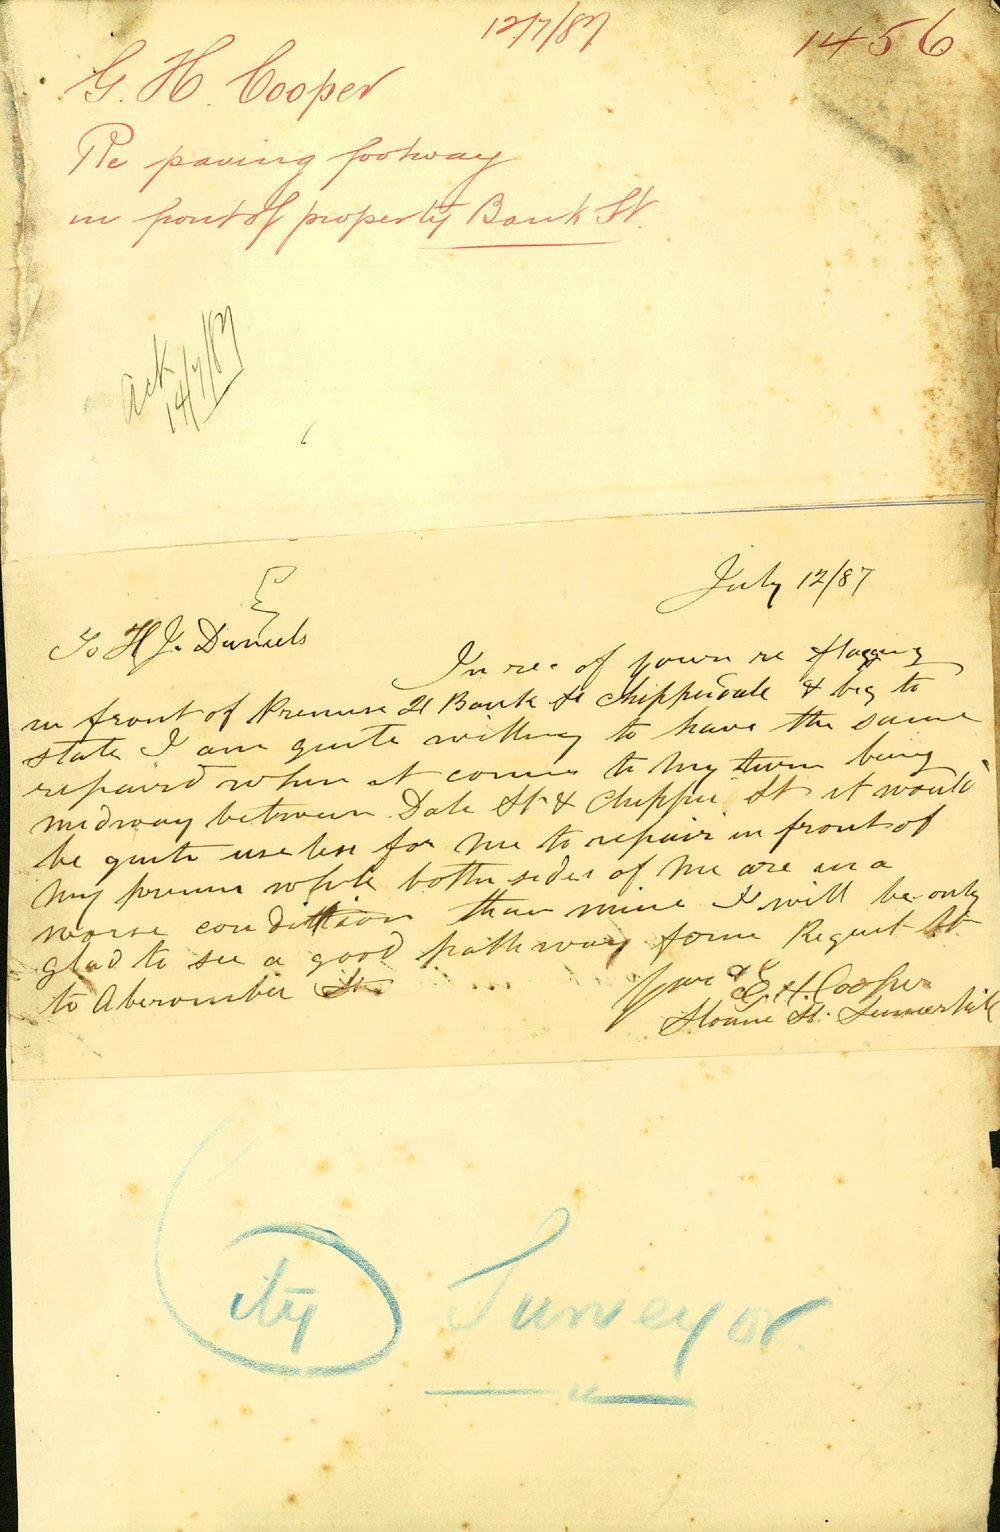 12/7/87
1456
G. H. Cooper
Re paving footway
in front of property Bank St.
Ack
14/7/87
July 12/87
To H J. Daniels
In re. of yours re flagging
in front of Premise 21 Bank St Chippendale & beg to
state I am quite willing to have the same
repaird when it comes to my turn being
midway between Dale St & Chippen St it would
be quite useless for me to repair in front of
my premis while both sides of me are in a
worse condittion than mine I will be only
glad to see a good pathway form Regent St
to Abercrombie St
Yours &c G. H. Cooper
Sloane St. Summerhill
City Surveyor.